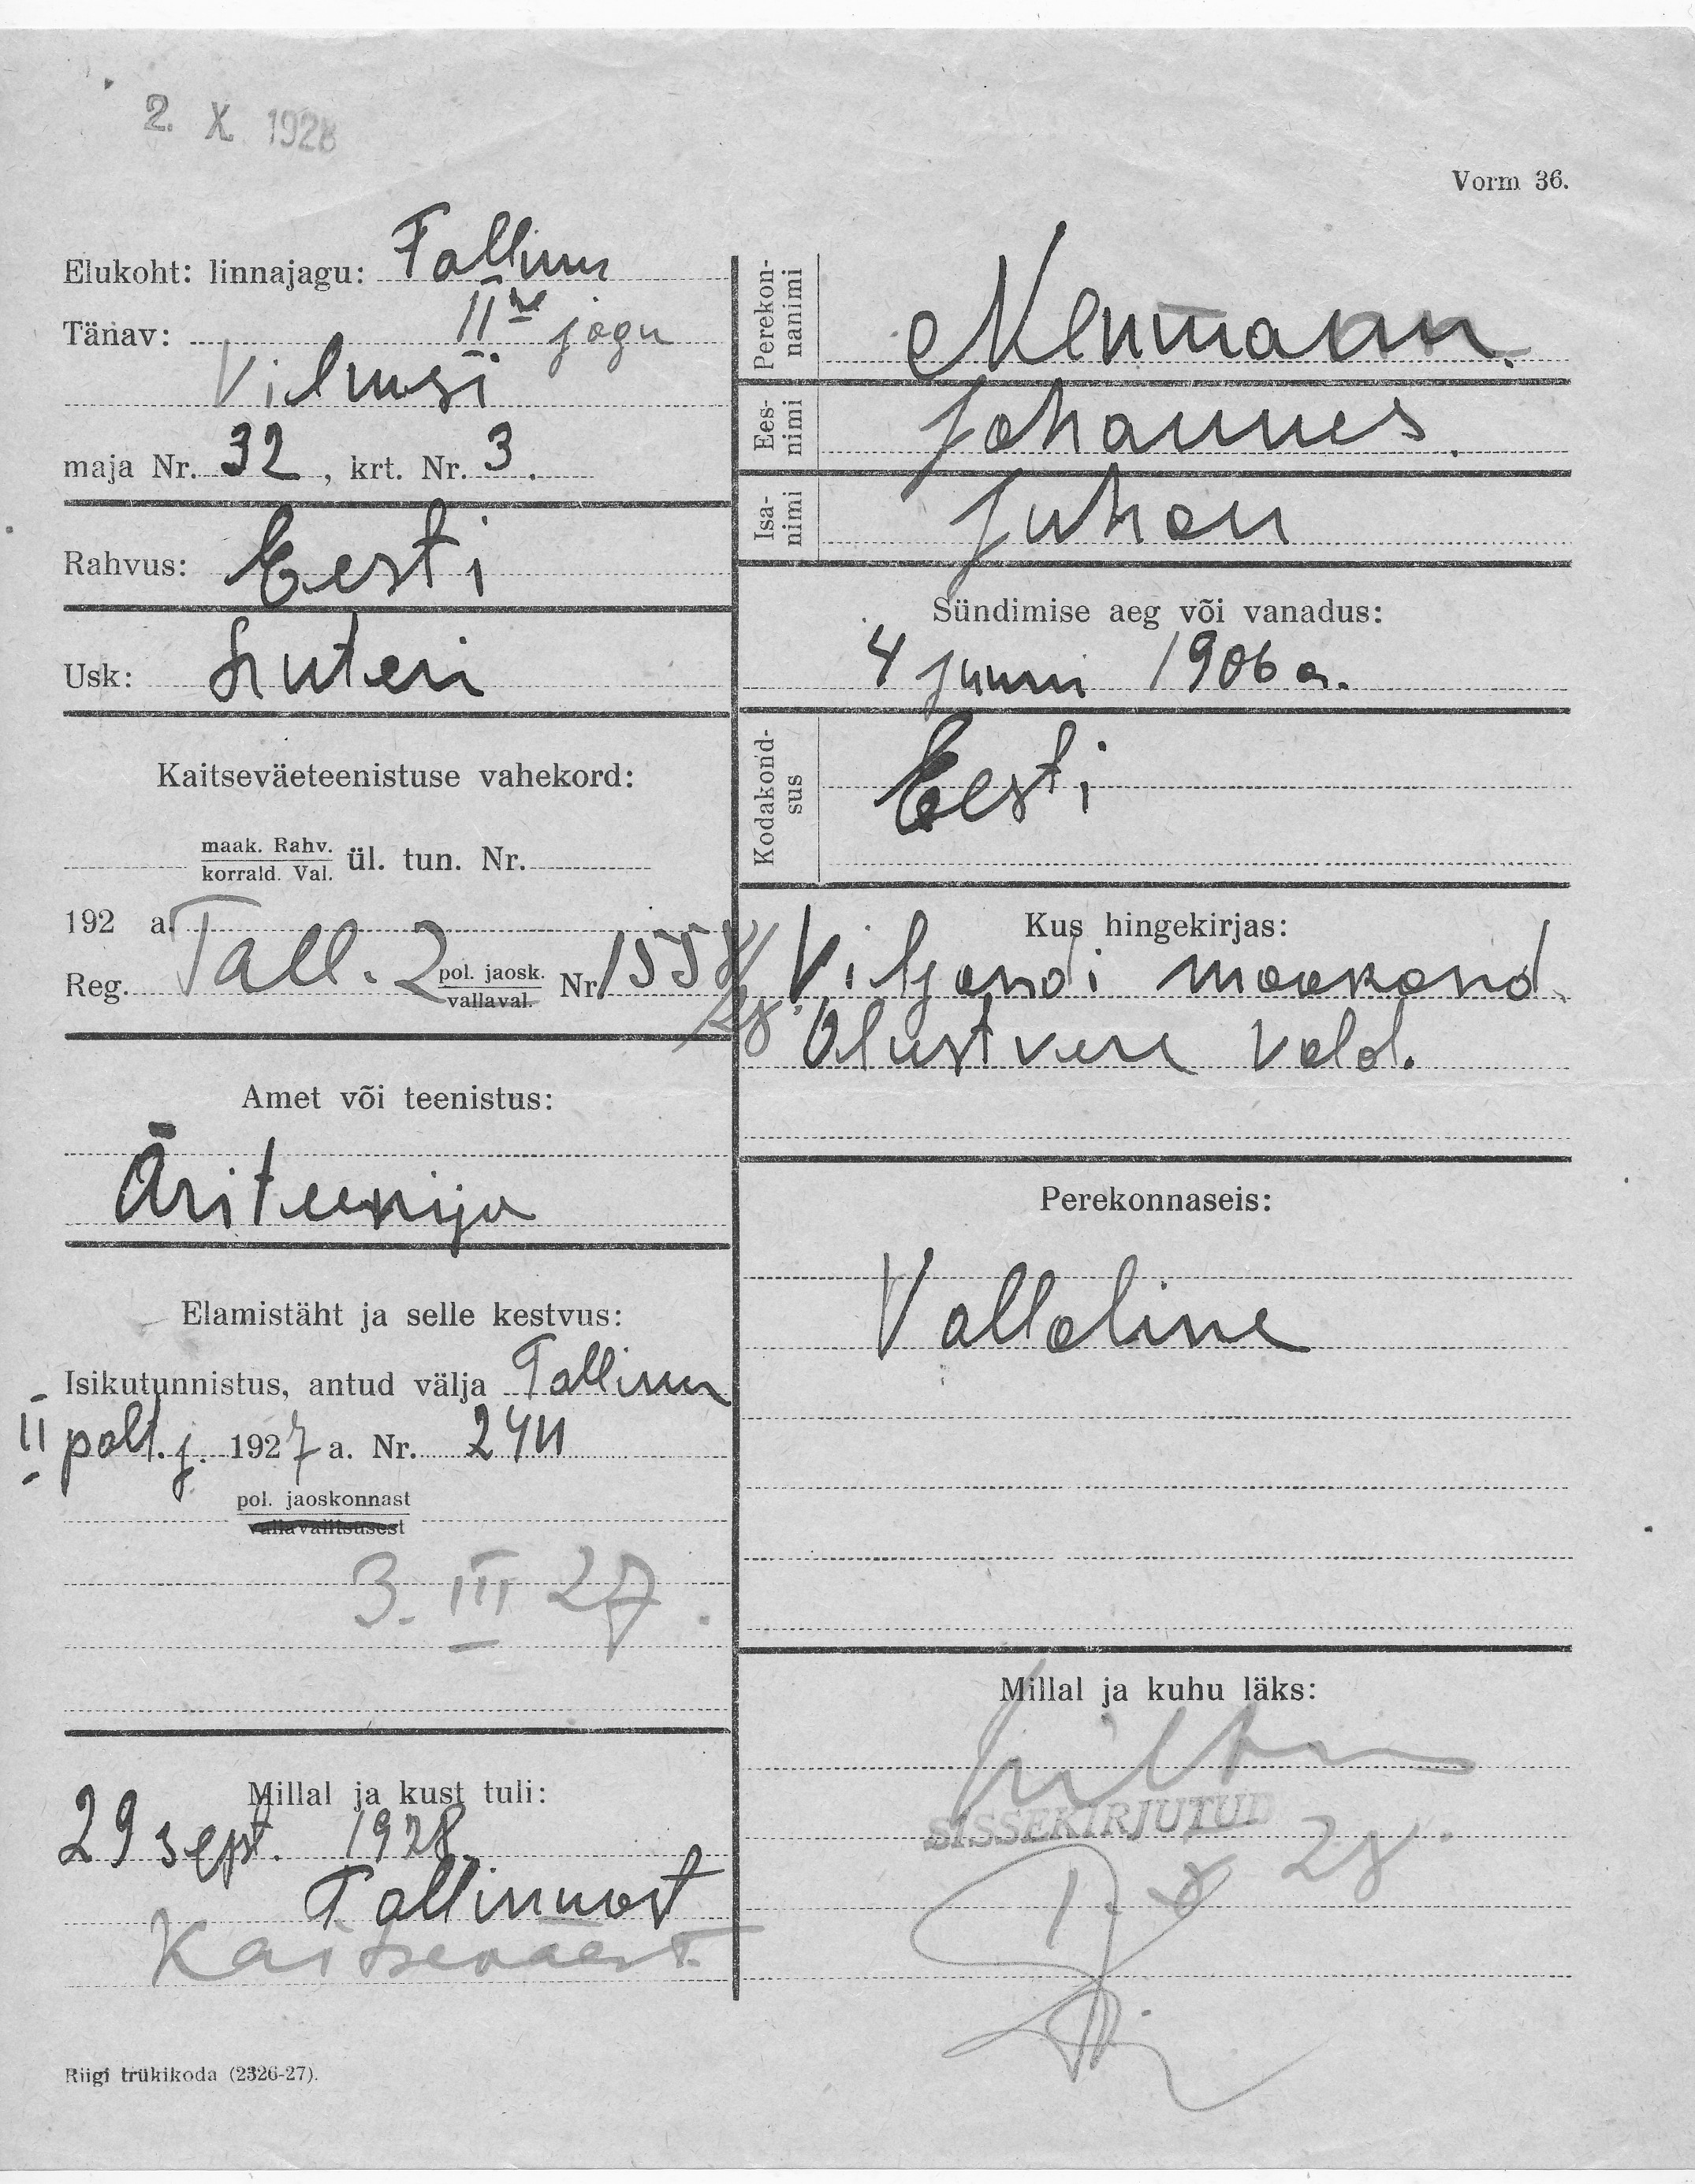 2. X 1928
Vorm 36.
Elukoht: linnajagu: Tallinn
Tänav: II jagu
Vilmsi
maja Nr. 32, krt. Nr. 3.
Rahvus: Eesti
Usk: Luteri
Kaitseväeteenistuse vahekord:
maak. Rahv.
korrald. Val. ül. tun. Nr.
192 a.
Reg. Tall. 2 pol. jaosk. Nr 1558/28.
vallaval.
Amet või teenistus:
Äriteenija
Elamistäht ja selle kestvus:
Isikutunnistus, antud välja Tallinn
II polt. j. 1927 a. Nr. 2411
pol. jaoskonnast
vallavalitsusest
3. III 27.
Millal ja kust tuli:
29 sept. 1928.
Tallinnast
Kaitseväest.
Riigi trükikoda (2326-27).
Perekonnanimi
Neumann.
Eesnimi
Johannes.
Isanimi
Juhan
Sündimise aeg või vanadus:
4 juuni 1906 a.
Kodakondsus
Eesti
Kus hingekirjas:
Viljandi maakond.
Olustvere vald.
Perekonnaseis:
Vallaline
Millal ja kuhu läks:
SISSEKIRJUTUD
28.